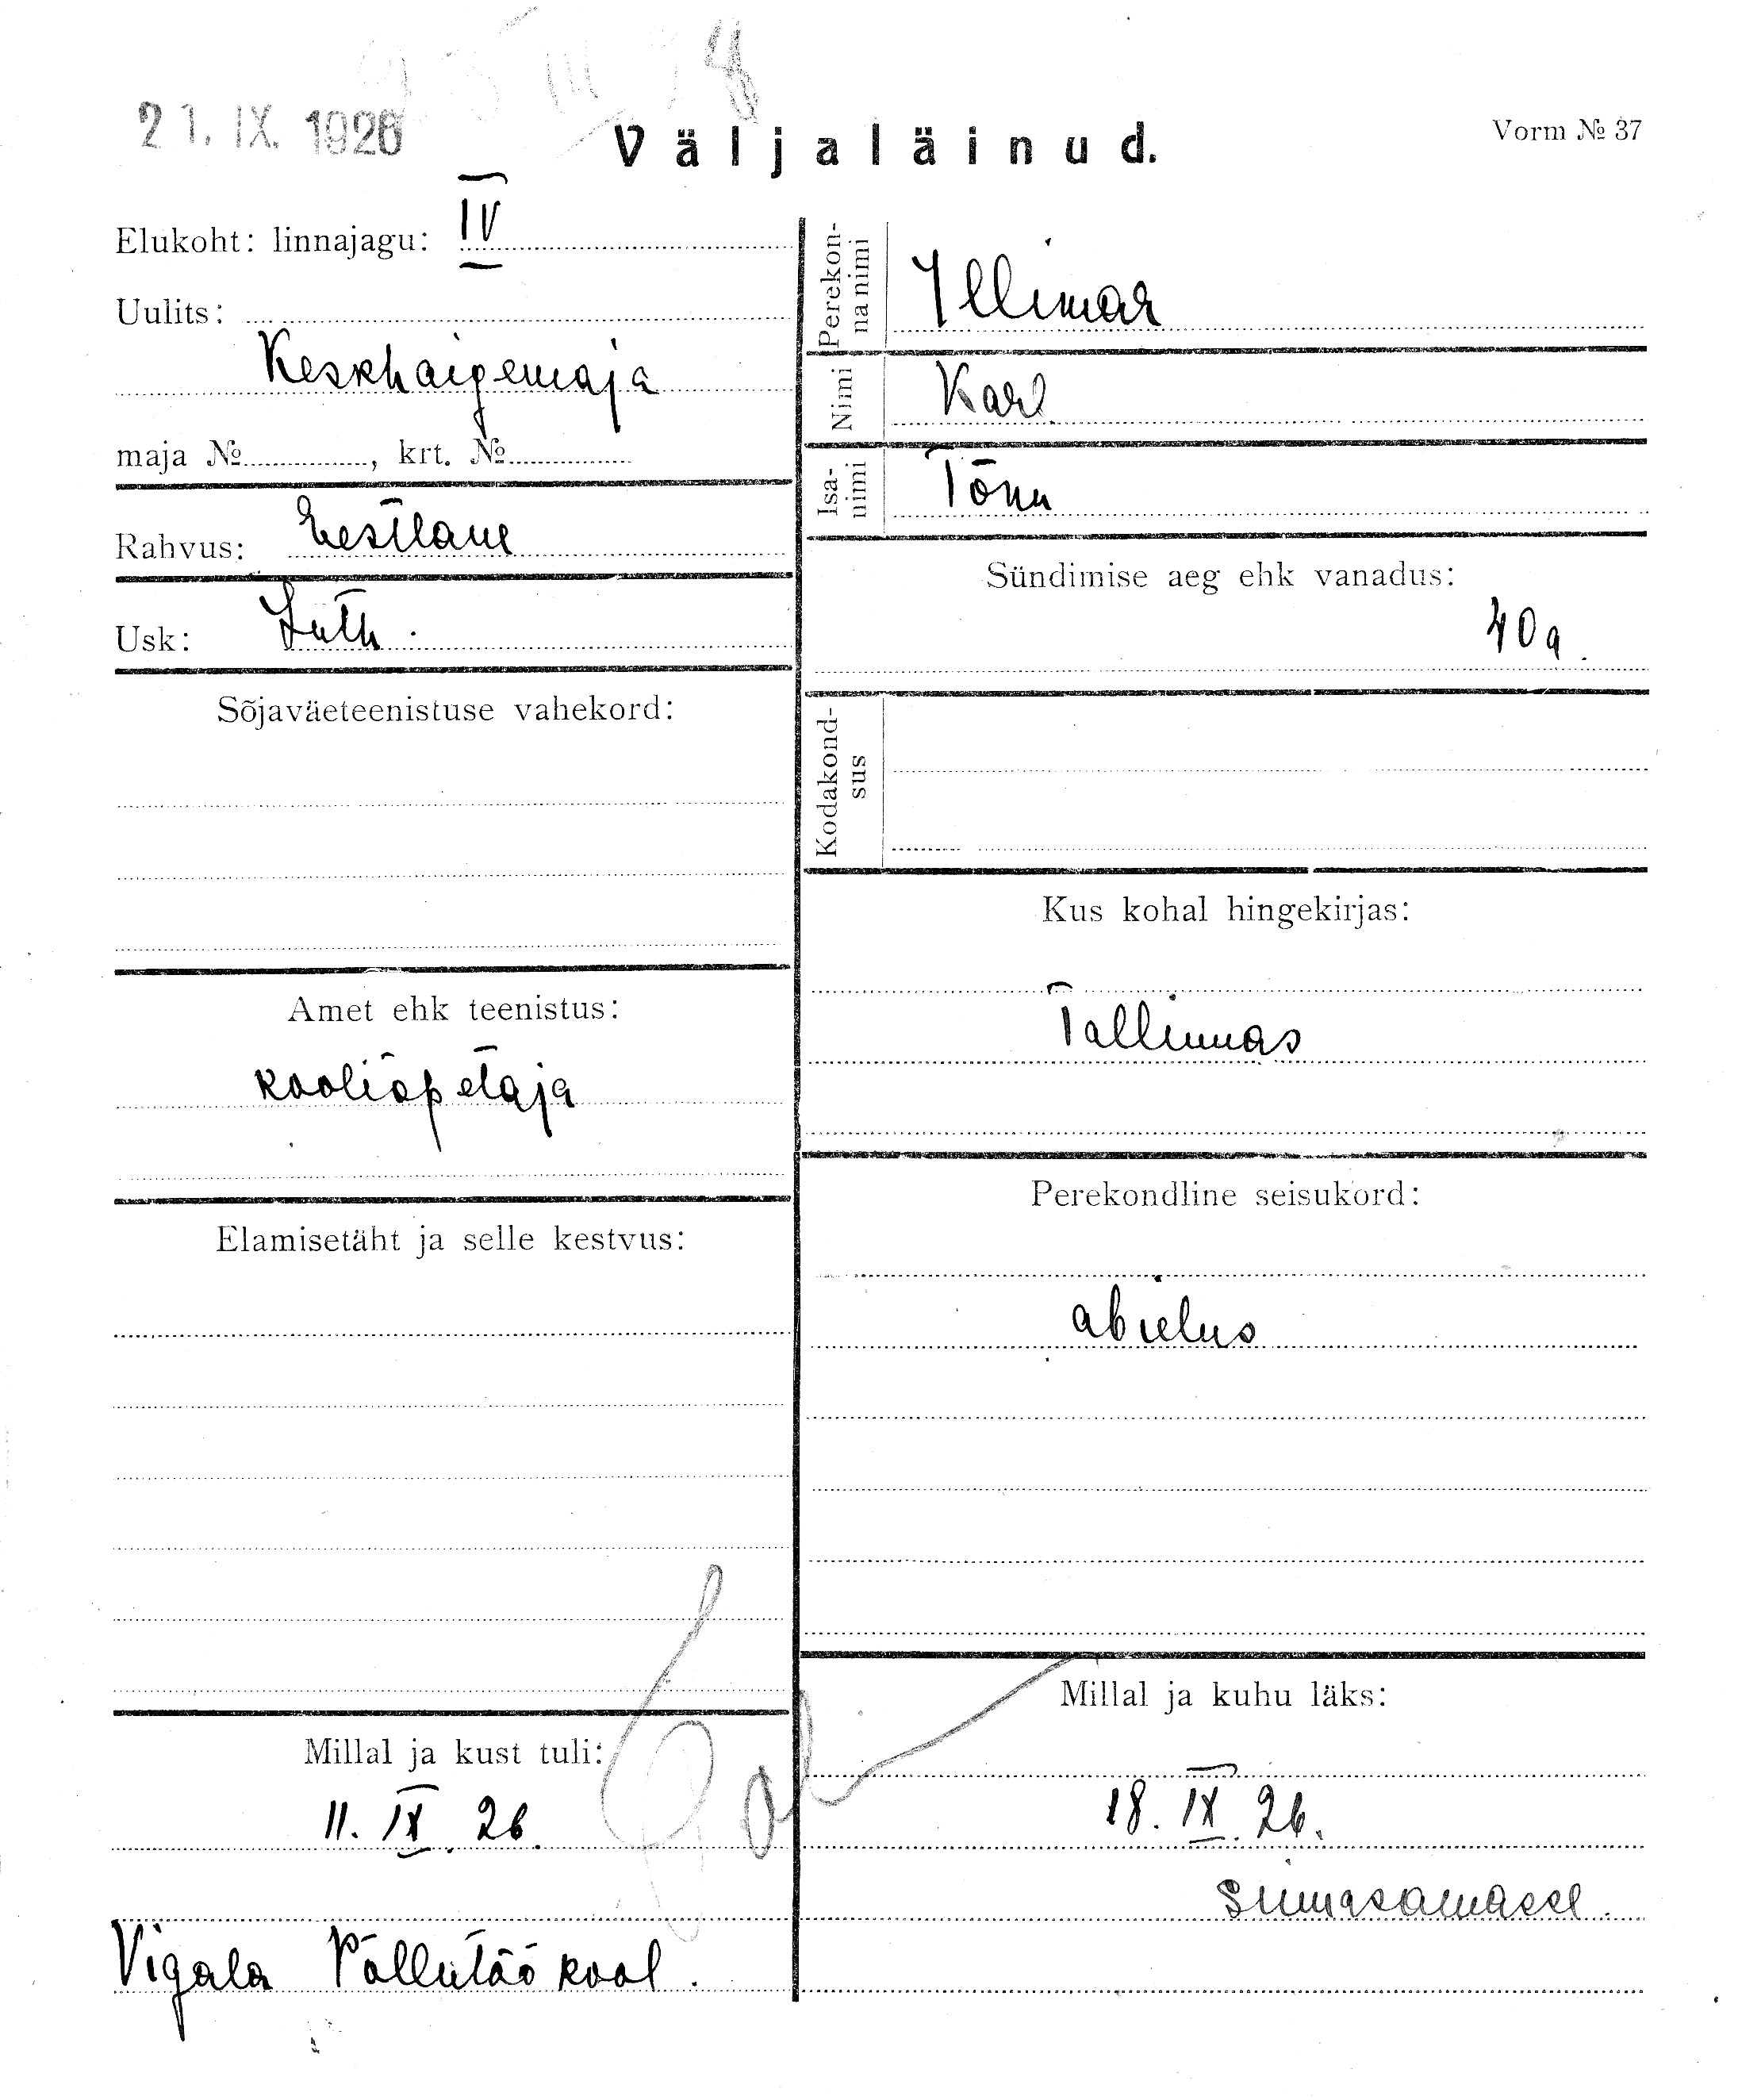 21. IX. 1926
Väljaläinud.
Vorm № 37
Elukoht: linnajagu: IV
Uulits:
Keskhaigemaja
maja №, krt. №
Rahvus: Eestlane
Usk: Luth.
Sõjaväeteenistuse vahekord:
Amet ehk teenistus:
kooliõpetaja
Elamisetäht ja selle kestvus:
Millal ja kust tuli:
11. IX. 26.
Vigala Põllutöökool.
Perekon-
na nimi
Illimar
Nimi Karl
Isa-
nimi
Tõnu
Sündimise aeg ehk vanadus:
40 a.
Kodakond-
sus
Kus kohal hingekirjas:
Tallinnas
Perekondline seisukord:
abielus
Millal ja kuhu läks:
18. IX. 26.
sinnasamasse.